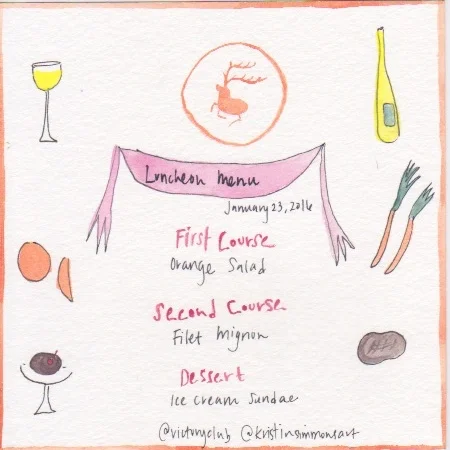 Luncheon Menu
January 23, 2016
First Course
Orange Salad
Second Course
Filet Mignon
Dessert
Ice Cream Sundae
@victoryclub @kristinsimmonsart